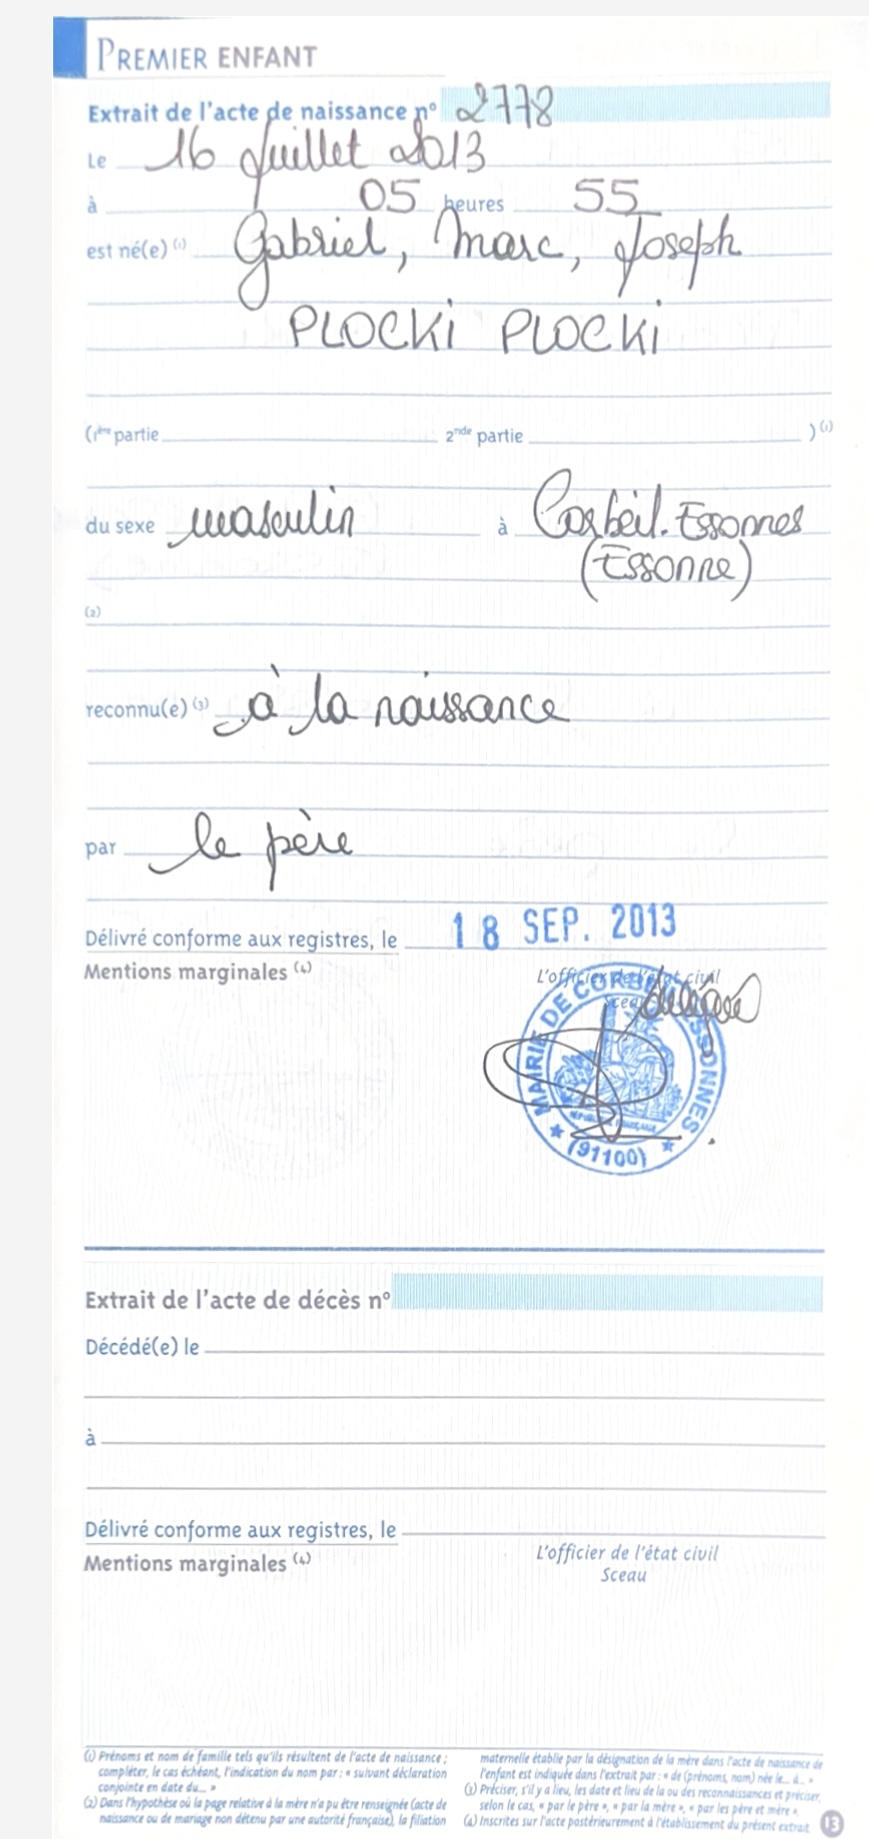 PREMIER ENFANT
Extrait de l'acte de naissance n° 2778
Le 16 Juillet 2013
à 05 heures 55
est né(e) (1) Gabriel, Marc, Joseph
PLOCKi PLOCKi
(1ère partie 2nde partie ) (1)
du sexe masculin à Corbeil.Essonnes
(Essonne)
(2)
reconnu(e) (3) à la naissance
par le père
Délivré conforme aux registres, le 18 SEP. 2013
Mentions marginales (4)
L'officier de l'état civil
Sceau
MAIRIE DE CORBEIL ESSONNES
(91100)
Extrait de l'acte de décès n°
Décédé(e) le
à
Délivré conforme aux registres, le
Mentions marginales (4)
L'officier de l'état civil
Sceau
(1) Prénoms et nom de famille tels qu'ils résultent de l'acte de naissance ;
compléter, le cas échéant, l'indication du nom par : « suivant déclaration
conjointe en date du... »
(2) Dans l'hypothèse où la page relative à la mère n'a pu être renseignée (acte de
naissance ou de mariage non détenu par une autorité française), la filiation
maternelle établie par la désignation de la mère dans l'acte de naissance de
l'enfant est indiquée dans l'extrait par : « de (prénoms, nom) née le... à... »
(3) Préciser, s'il y a lieu, les date et lieu de la ou des reconnaissances et préciser,
selon le cas, « par le père », « par la mère », « par les père et mère ».
(4) Inscrites sur l'acte postérieurement à l'établissement du présent extrait.
13